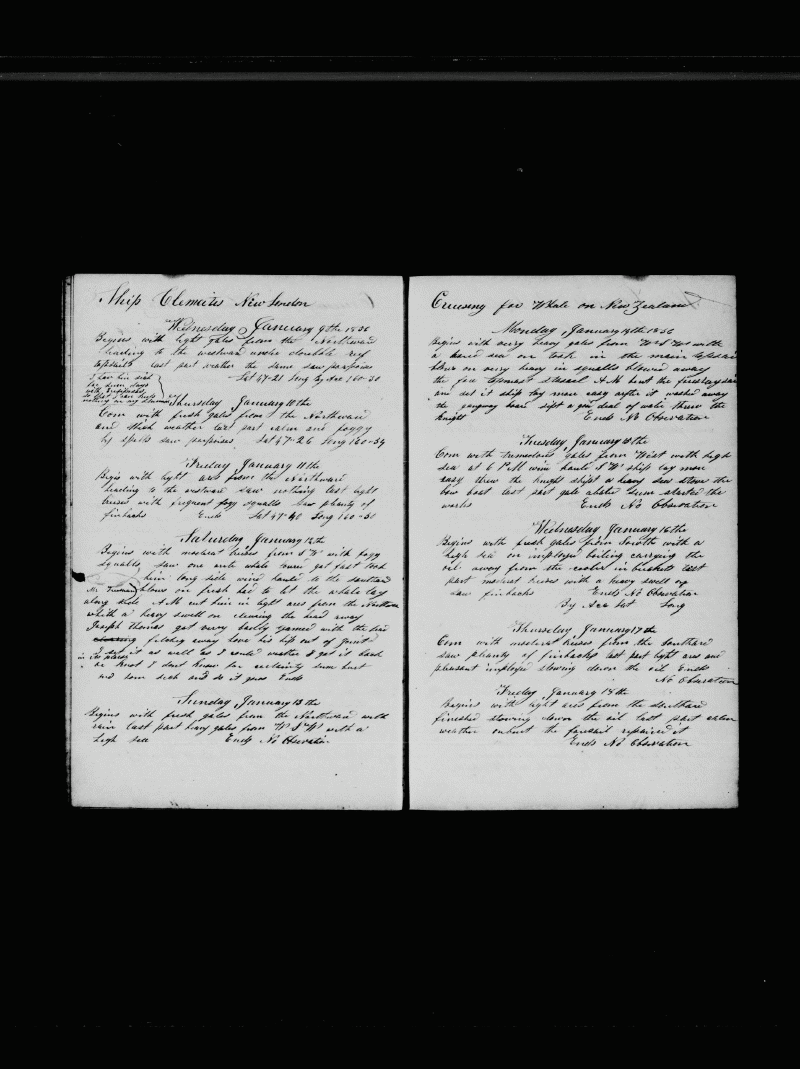 Ship Clematis New London
Wednesday January 9th 1856
Begins with light gales from the Northward
heading to the westward under double reef
topsails last part weather the same saw porpoises
Lat 47-21 Long by Acc 160-30
I have bin sick
for seven days
with
so that I can keep
nothing on my stomac
Thursday January 10th
Com with fresh gales from the Northward
and thick weather last part calm and foggy
by spells saw porpoises Lat 47-26 Long 160-54
Friday January 11th
Begins with light airs from the Northward
heading to the westward saw nothing last light
brises with frequent fogg squalls saw planty of
finbacks Ends Lat 47-40 Long 160-51
Saturday January 12th
Begins with moderat brises from SW with fogg
squalls saw one whale lowerd got fast took
him long side wind hauld to the southard
Mr. blows on fresh had to let the whale lay
along side A.M cut him in light airs from the Northard
with a heavy swell on clewing the head away
Joseph Thomas got very badly jamed with the head
fetching away hove his hip out of Joint
I set it as well as I could wether I got it back
in its place
or knot I dont know for certinty been hurt
and som sick and so it goes Ends
Sunday January 13th
Begins with fresh gales from the Northward with
rain last part heavy gales from W S W with a
high sea Ends No Obsevation
Cruising for Whale on New Zealand
Monday January 14th 1856
Begins with very heavy gales from W S W with
a hard sea on took in the main topsail
blows on very heavy in squalls blowed away
the fore topmast staysail A.M bent the foresaysail
and set it ship lay more easy after it washed away
the gangway board shipt a good deal of water threw the
knight Ends No Obsevation
Tuesday January 15th
Com with tremendous gales from West with high
sea at 6 P.M wind hauld S W ship lay more
easy threw the knight shipt a heavy sea stove the
bow boat last part gale abated som started the
works Ends No Obsevation
Wednesday January 16th
Begins with fresh gales from South with a
high sea on imployed boiling carrying the
oil away from the cooler in buckets last
part moderat brises with a heavy swell on
saw finbacks Ends No Obsevation
By Acc Lat Long
Thursday January 17th
Com with moderat brises from the Southard
saw planty of finbacks last part light airs and
pleasant imployed stowing down the oil Ends
No Obsevation
Friday January 18th
Begins with light airs from the Southard
finished stowing down the oil last part calm
weather unbent the foresail repaired it
Ends No Obsevation